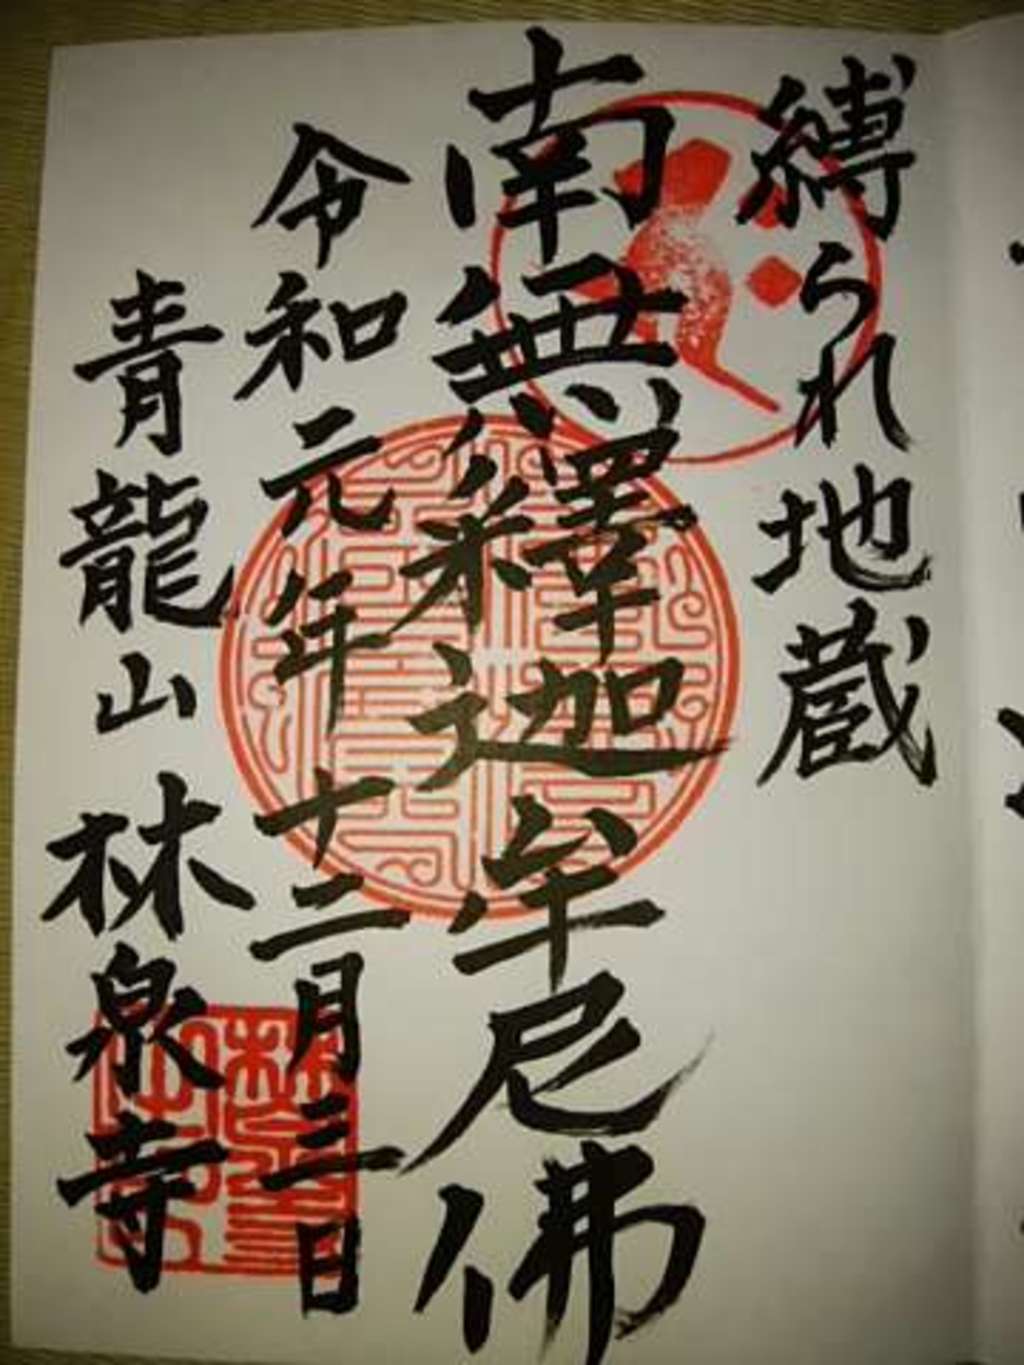 縛られ地蔵
南無釋迦牟尼佛
令和元年十二月三日
青龍山林泉寺